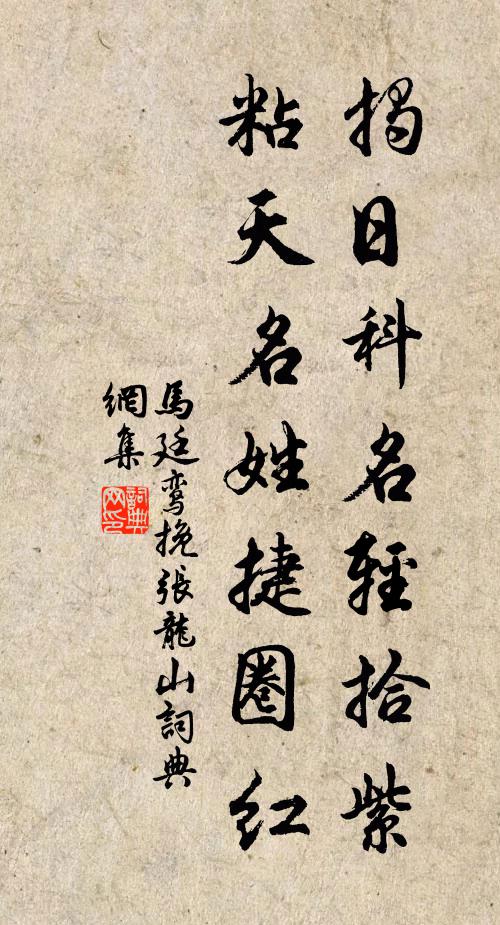 揭日科名輕拾紫
粘天名姓捷圈紅
馬廷鸞挽張龍山詞典
網集
詞典網印